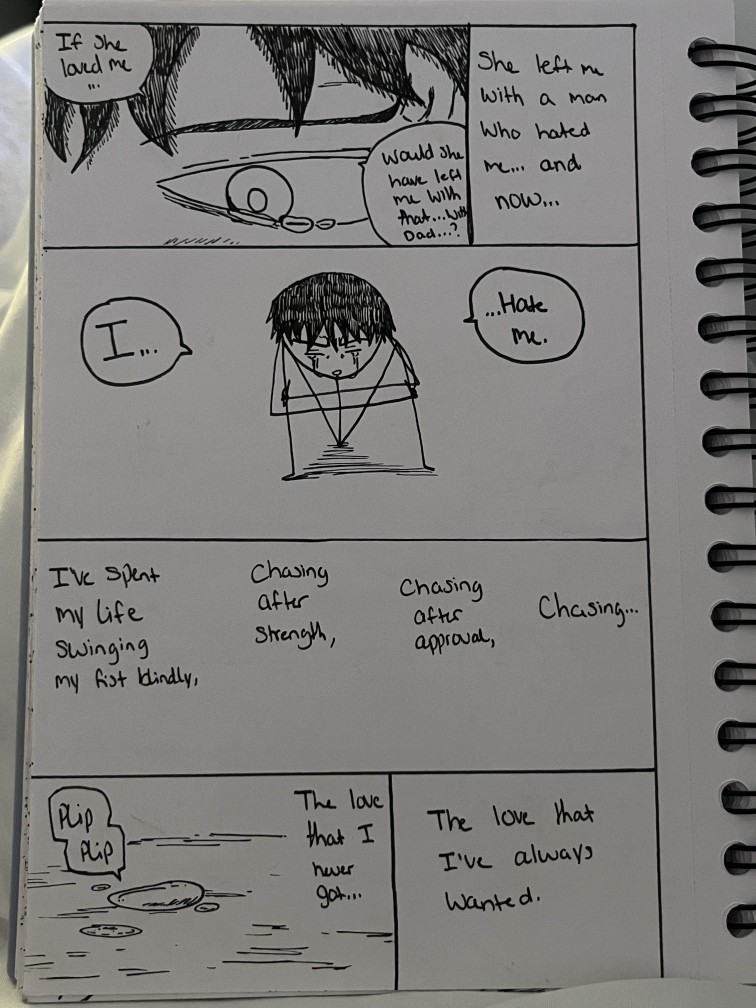 If she
loved me
...
Would she
have left
me with
that...with
Dad...?
She left me
with a man
who hated
me... and
now...
I...
...Hate
me.
I've spent
my life
swinging
my fist blindly,
Chasing
after
strength,
Chasing
after
approval,
Chasing...
Plip
Plip
The love
that I
never
got...
The love that
I've always
wanted.